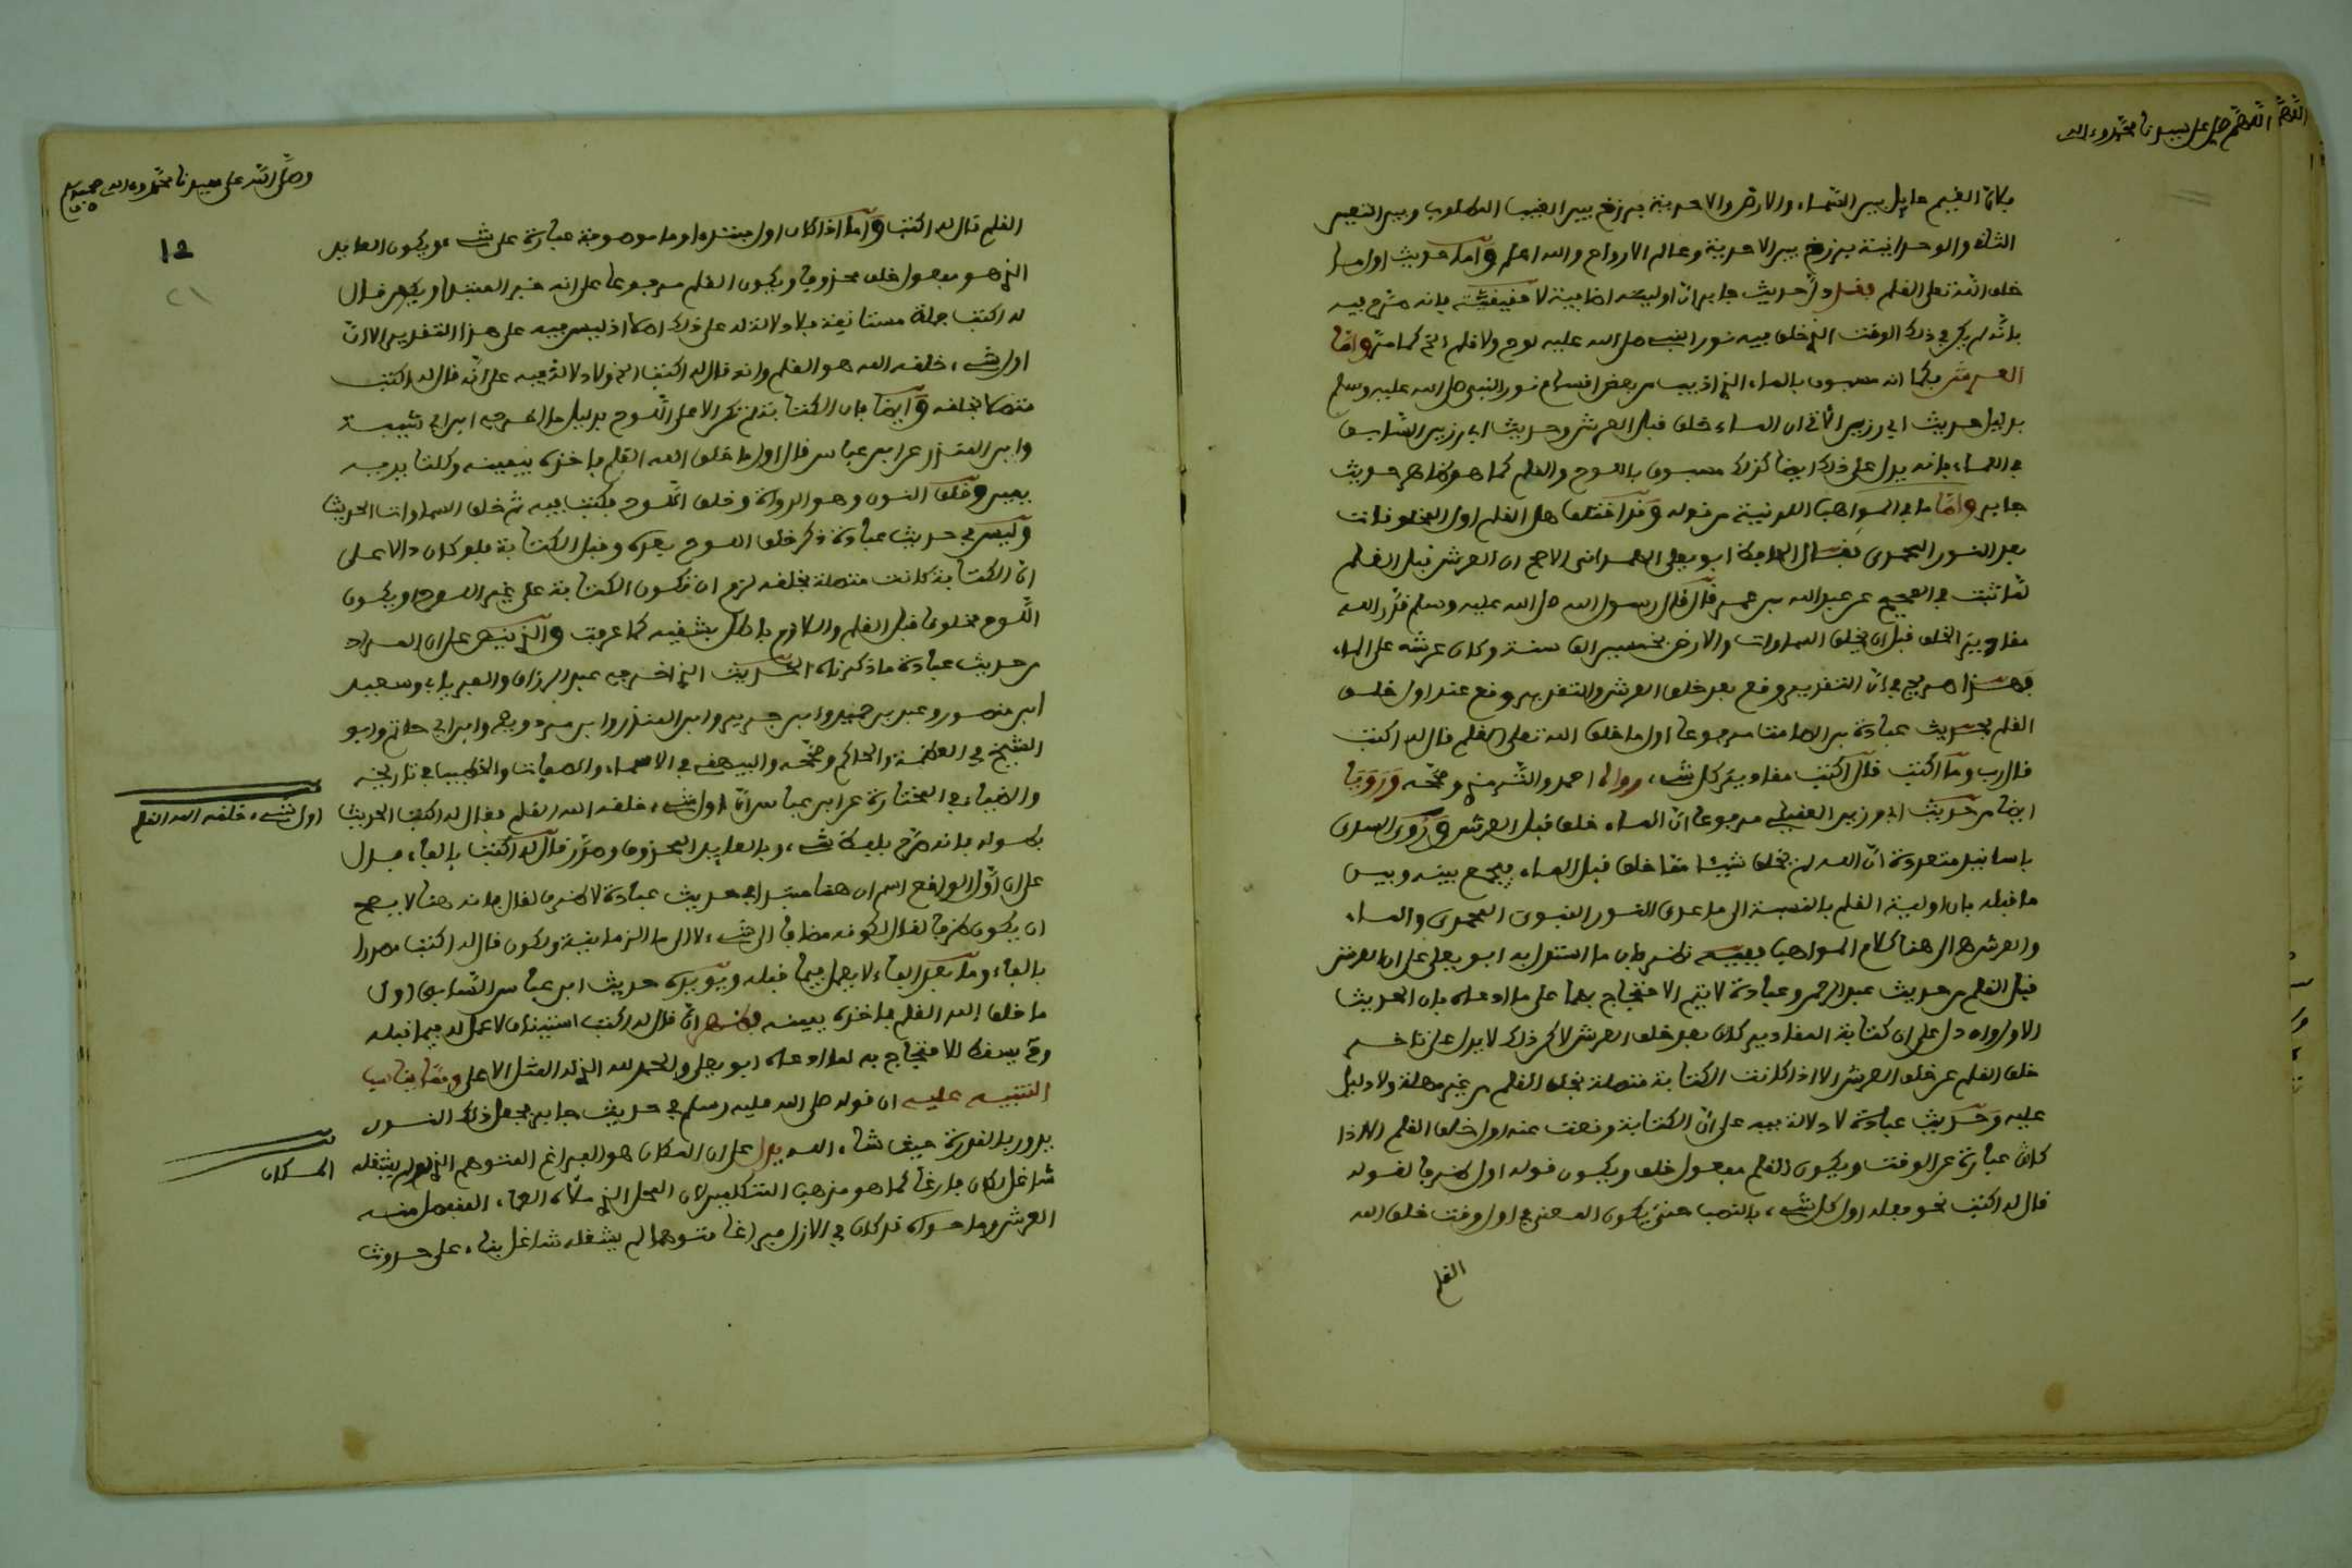 اللهم اللهم صل على سيدنا محمد وءاله
فكان الغيم حايل بين السماء والارض والاحدية برزخ بين الغيب المطلوب وبين التعين
الثاني والوحدانية برزخ بين الاحدية وعالم الارواح والله اعلم وأما حديث اول ما
خلق الله تعلى القلم فقد دل حديث جابر ان اوليته اضافية لا حقيقية فانه صرح فيه
بانه لم يكن في ذلك الوقت الذي خلق فيه نور النبي صلى الله عليه لوح ولا قلم الخ كما مر واما
العرش فكما انه مسبوق بالماء الذي اذيب من بعض اقسام نور النبي صلى الله عليه وسلم
بدليل حديث ابي رزين الاتي ان الماء خلق قبل العرش وحديث ابي رزين السابق
في العماء فانه يدل على ذلك ايضا كذلك مسبوق باللوح والقلم كما هو ظاهر حديث
جابر واما ما في المواهب اللدنية من قوله وقد اختلف هل القلم اول المخلوقات
بعد النور المحمدي فقال الحافظ ابو يعلى الهمداني الاصح ان العرش قبل القلم
لما ثبت في الصحيح عن عبد الله بن عمر قال قال رسول الله صلى الله عليه وسلم قدر الله
مقادير الخلق قبل ان يخلق السماوات والارض بخمسين الف سنة وكان عرشه على الماء
فهذا صريح في ان التقدير وقع بعد خلق العرش والتقدير وقع عند اول خلق
القلم بحديث عبادة بن الصامت مرفوعا اول ما خلق الله تعلى القلم قال له اكتب
قال رب وما اكتب قال اكتب مقادير كل شيء رواه احمد والترمذي وصححه ورويا
ايضا من حديث ابي رزين العقيلي مرفوعا ان الماء خلق قبل العرش وروى السدي
باسانيد متعددة ان الله لم يخلق شيئا مما خلق قبل الماء فيجمع بينه وبين
ما قبله بان اولية القلم بالنسبة الى ما عدى النور النبوي المحمدي والماء
والعرش الى هنا كلام المواهب ففيه نظر فان ما استدل به ابو يعلى على ان العرش
قبل القلم من حديث عبد الرحمن وعبادة لا يتم الاحتجاج بهما على ما ادعاه فان الحديث
الاول وان دل على ان كتابة المقادير كان بعد خلق العرش لاكن ذلك لا يدل على تاخر
خلق القلم عن خلق العرش الا اذا كانت الكتابة متصلة بخلق القلم من غير مهلة ولا دليل
عليه وحديث عبادة لا دلالة فيه على ان الكتابة وقعت عند اول خلق القلم الا اذا
كان عبارة عن الوقت ويكون القلم مفعول خلق ويكون قوله اول ظرفا لقوله
قال له اكتب نحو فعله اول كل شيء بالنصب حتى يكون المعنى في اول وقت خلق الله
القلم
وصلى الله على سيدنا محمد وءاله وصحبه
12
21
القلم قال له اكتب وأما اذا كان اول مبتدءا وما موصوفة عبارة على شيء ويكون العايد
الذي هو مفعول خلق محذوفا ويكون القلم مرفوعا على انه خبر المبتدا ويكون قال
له اكتب جملة مستانفة فلا دلالة له على ذلك اصلا اذ ليس فيه على هذا التقدير الا ان
اول شيء خلقه الله هو القلم وانه قال له اكتب الخ ولا دلالة فيه على انه قال له اكتب
متصلا بخلقه وأيضا فان الكتابة لم تكن الا على اللوح بدليل ما اخرجه ابن ابي شيبة
وابن المنذر عن ابن عباس قال اول ما خلق الله القلم فاخذه بيمينه وكلتا يديه
يمين وخلق النون وهو الدواة وخلق اللوح فكتب فيه ثم خلق السماوات الحديث
وليس في حديث عبادة ذكر خلق اللوح بعده وقبل الكتابة فلو كان دالا على
ان الكتابة كانت متصلة بخلقه لزم ان تكون الكتابة على غير اللوح او يكون
اللوح مخلوقا قبل القلم واللازم باطل بشقيه كما عرفت والذي يظهر على ان المراد
من حديث عبادة ما ذكرناه الحديث الذي اخرجه عبد الرزاق والفريابي وسعيد
ابن منصور وعبد بن حميد وابن جرير وابن المنذر وابن مردويه وابن ابي حاتم وابو
الشيخ في العظمة والحاكم وصححه والبيهقي في الاسماء والصفات والخطيب في تاريخه
والضياء في المختارة عن ابن عباس ان اول شيء خلقه الله القلم فقال له اكتب الحديث
بطوله فانه صرح بلفظ شيء وبالعايد المحذوف وصدر قال له اكتب بالفاء فدل
على ان اول الواقع اسم ان هنا مبتدا في حديث عبادة لا ظرف لقال فانه هنا لا يصح
ان يكون ظرفا لقال لكونه مضافا الى شيء لا الى ما الزمانية ولكون قال له اكتب مصدرا
بالفاء وما بعد الفاء لا يعمل فيما قبله ويؤيده حديث ابن عباس السابق اول
ما خلق الله القلم فاخذه بيمينه فظهر ان قال له اكتب استيناف لا عمل له فيما قبله
وح يسقط الاحتجاج به لما ادعاه ابو يعلى والحمد لله الذي له المثل الاعلى ومما يناسب
التنبيه عليه ان قوله صلى الله عليه وسلم في حديث جابر فجعل ذلك النور
يدور بالقدرة حيث شاء الله يدل على ان المكان هو الفراغ المتوهم الذي لم يشغله
شاغل لكان فارغا كما هو مذهب المتكلمين لان المحل الذي ملأه العماء المنفصل منه
العرش وما حواه قد كان في الازل فراغا متوهما لم يشغله شاغل بناء على حدوث
اول شيء خلقه الله القلم
المكان